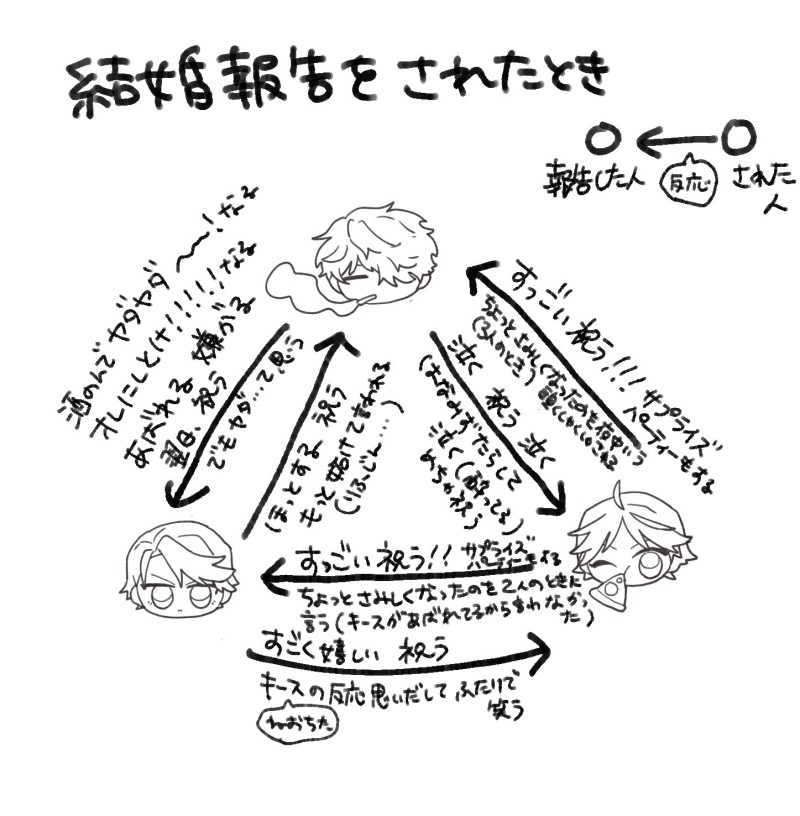 結婚報告をされたとき
報告した人
反応
された人
酒のんでヤダヤダ〜!なる
オレにしとけ!!!!!!なる
あばれる 嫌がる
翌日、祝う
でもヤダ…て思う
ほっとする 祝う
もっと妬けて言われる
(りふじん....)
すっごい祝う!!! サプライズ
パーティーもする
ちょっとさみしくなったのを
(2人のとき)
泣く 祝う 泣く
(はなみずたらして
泣く(酔ってる)
めちゃ祝う
すっごい祝う!! サプライズ
パーティーもする
ちょっとさみしくなったのを2人のときに
言う(キースがあばれてるから言わなかっ
た)
すごく嬉しい 祝う
キースの反応思いだしてふたりで
笑う
ねおちた